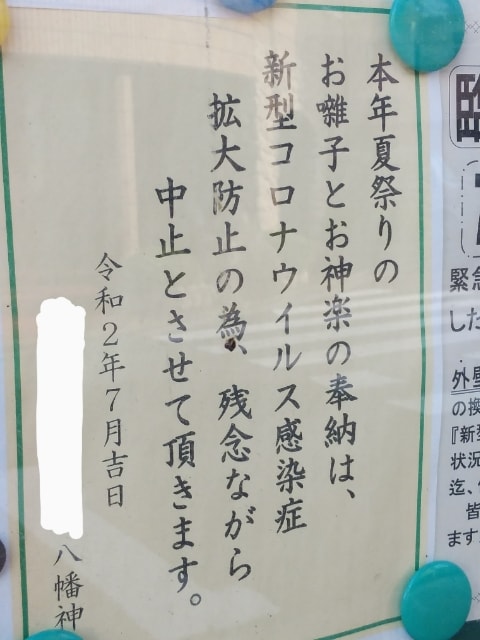 本年夏祭りの
お囃子とお神楽の奉納は、
新型コロナウイルス感染症
拡大防止の為、残念ながら
中止とさせて頂きます。
令和2年7月吉日
八幡神
緊急
した
外壁
の換
『新型
状況
迄、
皆
ます